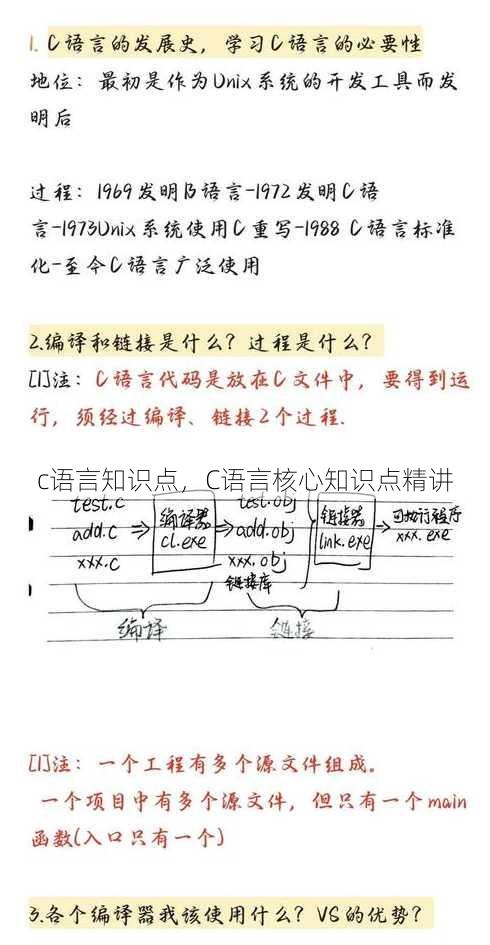 1. C语言的发展史，学习C语言的必要性
地位：最初是作为Unix系统的开发工具而发
明后
过程：1969发明B语言-1972发明C语
言-1973Unix系统使用C重写-1988 C语言标准
化-至今C语言广泛使用
2.编译和链接是什么？过程是什么？
[1]注：C语言代码是放在C文件中，要得到运
行，须经过编译、链接2个过程.
c语言知识点，C语言核心知识点精讲
test.c 编译器 test.obj 链接器 可执行程序
add.c cl.exe add.obj link.exe xxx.exe
xxx.c xxx.obj
链接库
编译 链接
[1]注：一个工程有多个源文件组成。
一个项目中有多个源文件，但只有一个main
函数(入口只有一个)
3.各个编译器我该使用什么？VS的优势？